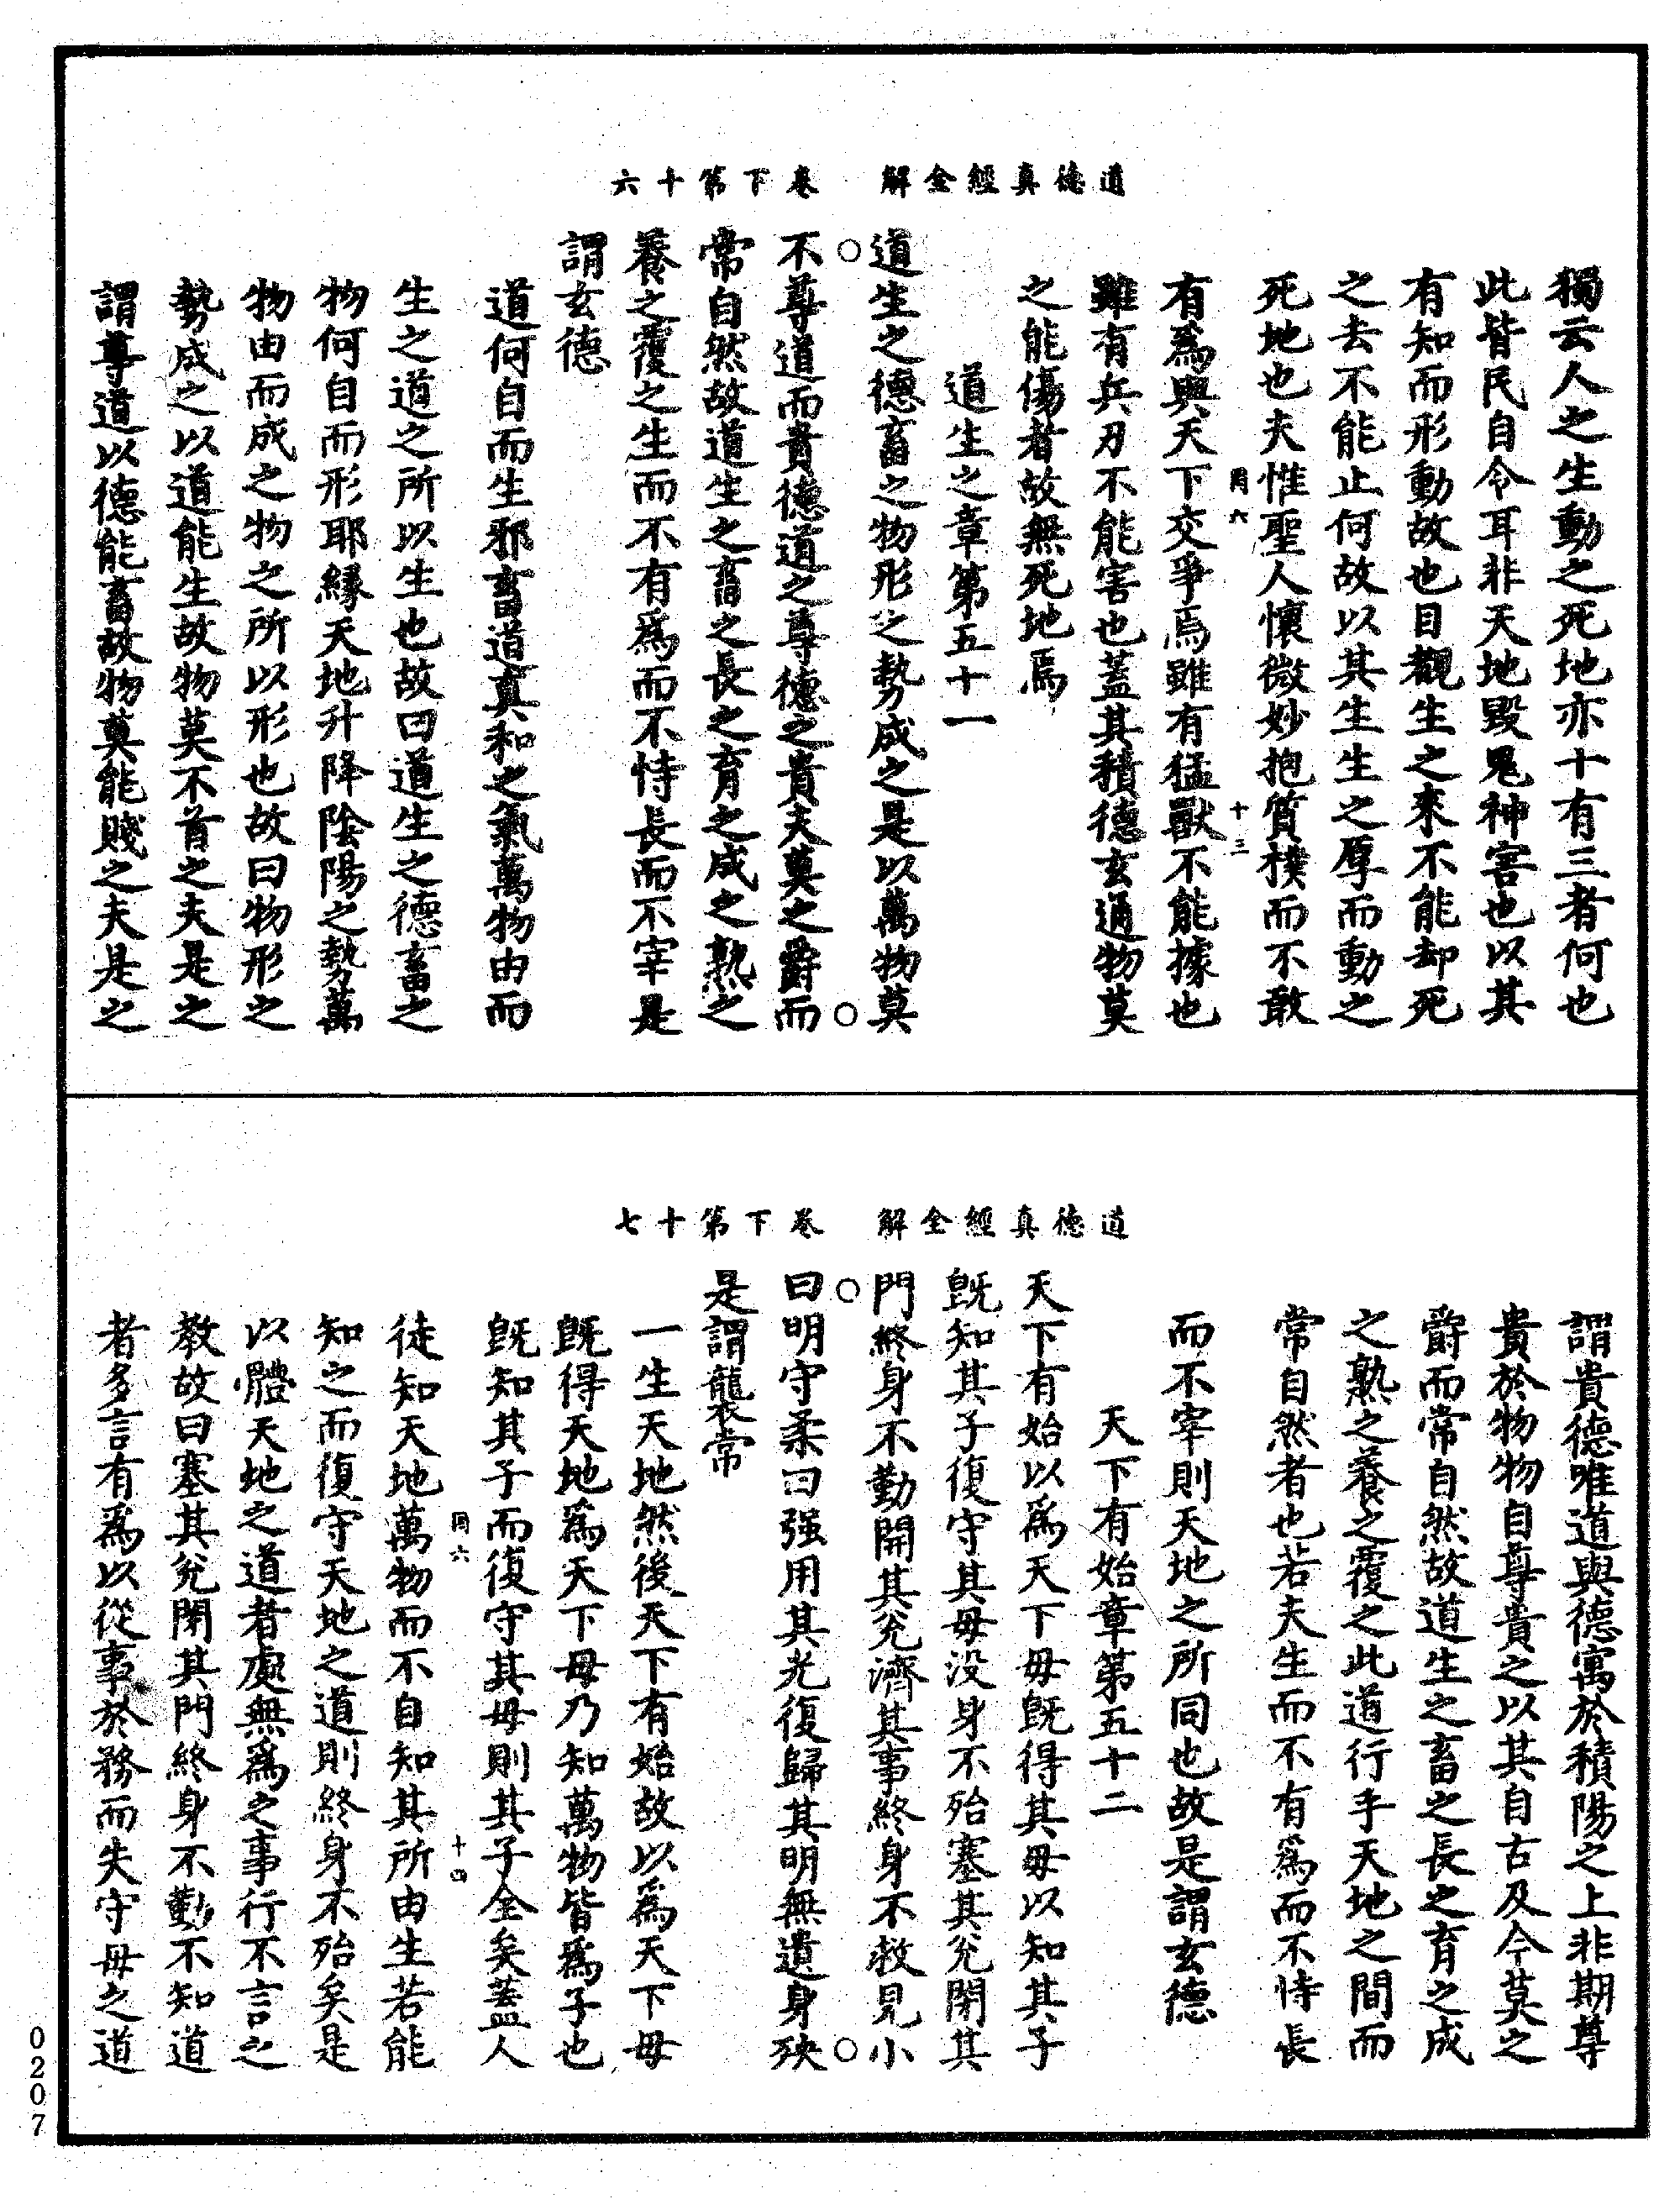 道德真經全解　卷下第十六
獨云人之生動之死地亦十有三者何也
此皆民自令耳非天地毀鬼神害也以其
有知而形動故也目觀生之來不能却死
之去不能止何故以其生生之厚而動之
死地也夫惟聖人懷微妙抱質樸而不敢
罔六　十三
有爲與天下交爭焉雖有猛獸不能據也
雖有兵刃不能害也蓋其積德玄通物莫
之能傷者故無死地焉
道生之章第五十一
道生之德畜之物形之勢成之是以萬物莫
○　○
不尊道而貴德道之尊德之貴夫莫之爵而
常自然故道生之畜之長之育之成之熟之
養之覆之生而不有爲而不恃長而不宰是
謂玄德
道何自而生邪畜道真和之氣萬物由而
生之道之所以生也故曰道生之德畜之
物何自而形耶緣天地升降陰陽之勢萬
物由而成之物之所以形也故曰物形之
勢成之以道能生故物莫不首之夫是之
謂尊道以德能畜故物莫能賤之夫是之
道德真經全解　卷下第十七
謂貴德唯道與德寓於積陽之上非期尊
貴於物物自尊貴之以其自古及今莫之
爵而常自然故道生之畜之長之育之成
之熟之養之覆之此道行乎天地之間而
常自然者也若夫生而不有爲而不恃長
而不宰則天地之所同也故是謂玄德
天下有始章第五十二
天下有始以爲天下母旣得其母以知其子
旣知其子復守其母没身不殆塞其兊閉其
門終身不勤開其兊濟其事終身不救見小
○　○
曰明守柔曰强用其光復歸其明無遺身殃
是謂襲常
一生天地然後天下有始故以爲天下母
旣得天地爲天下母乃知萬物皆爲子也
旣知其子而復守其母則其子全矣蓋人
罔六　十四
徒知天地萬物而不自知其所由生若能
知之而復守天地之道則終身不殆矣是
以體天地之道者處無爲之事行不言之
教故曰塞其兊閉其門終身不勤不知道
者多言有爲以從事於務而失守母之道
0207